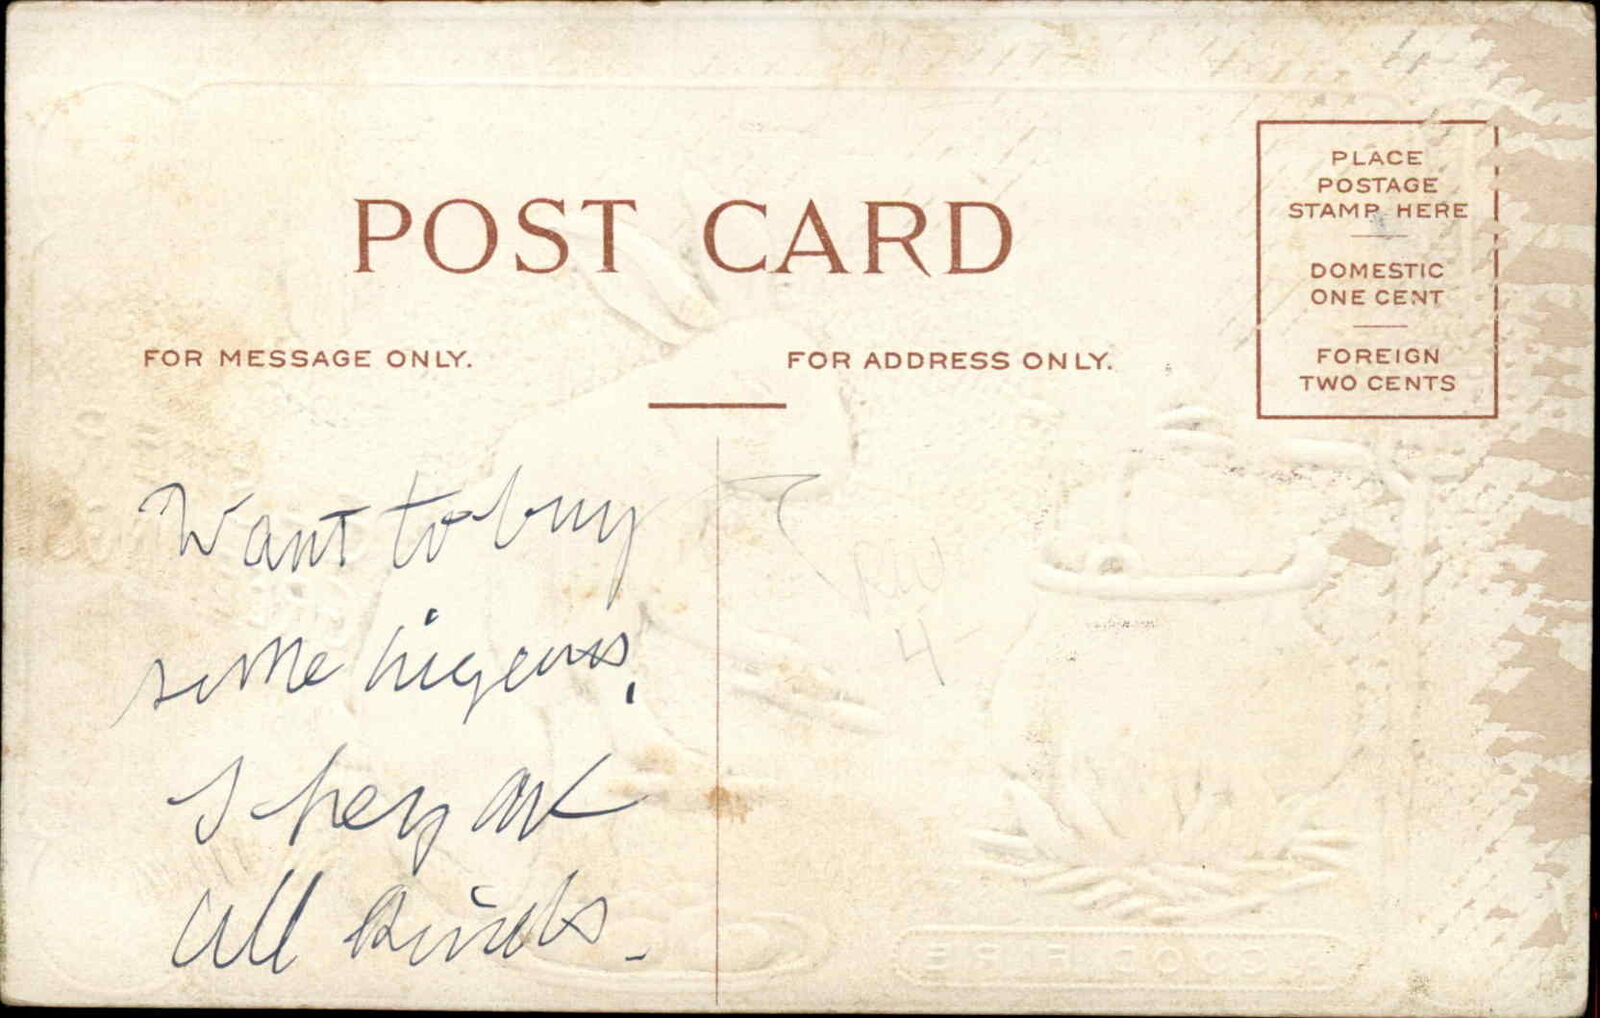 POST CARD
PLACE
POSTAGE
STAMP HERE
DOMESTIC
ONE CENT
FOREIGN
TWO CENTS
FOR MESSAGE ONLY.
FOR ADDRESS ONLY.
Want to buy
some
4
all kinds.